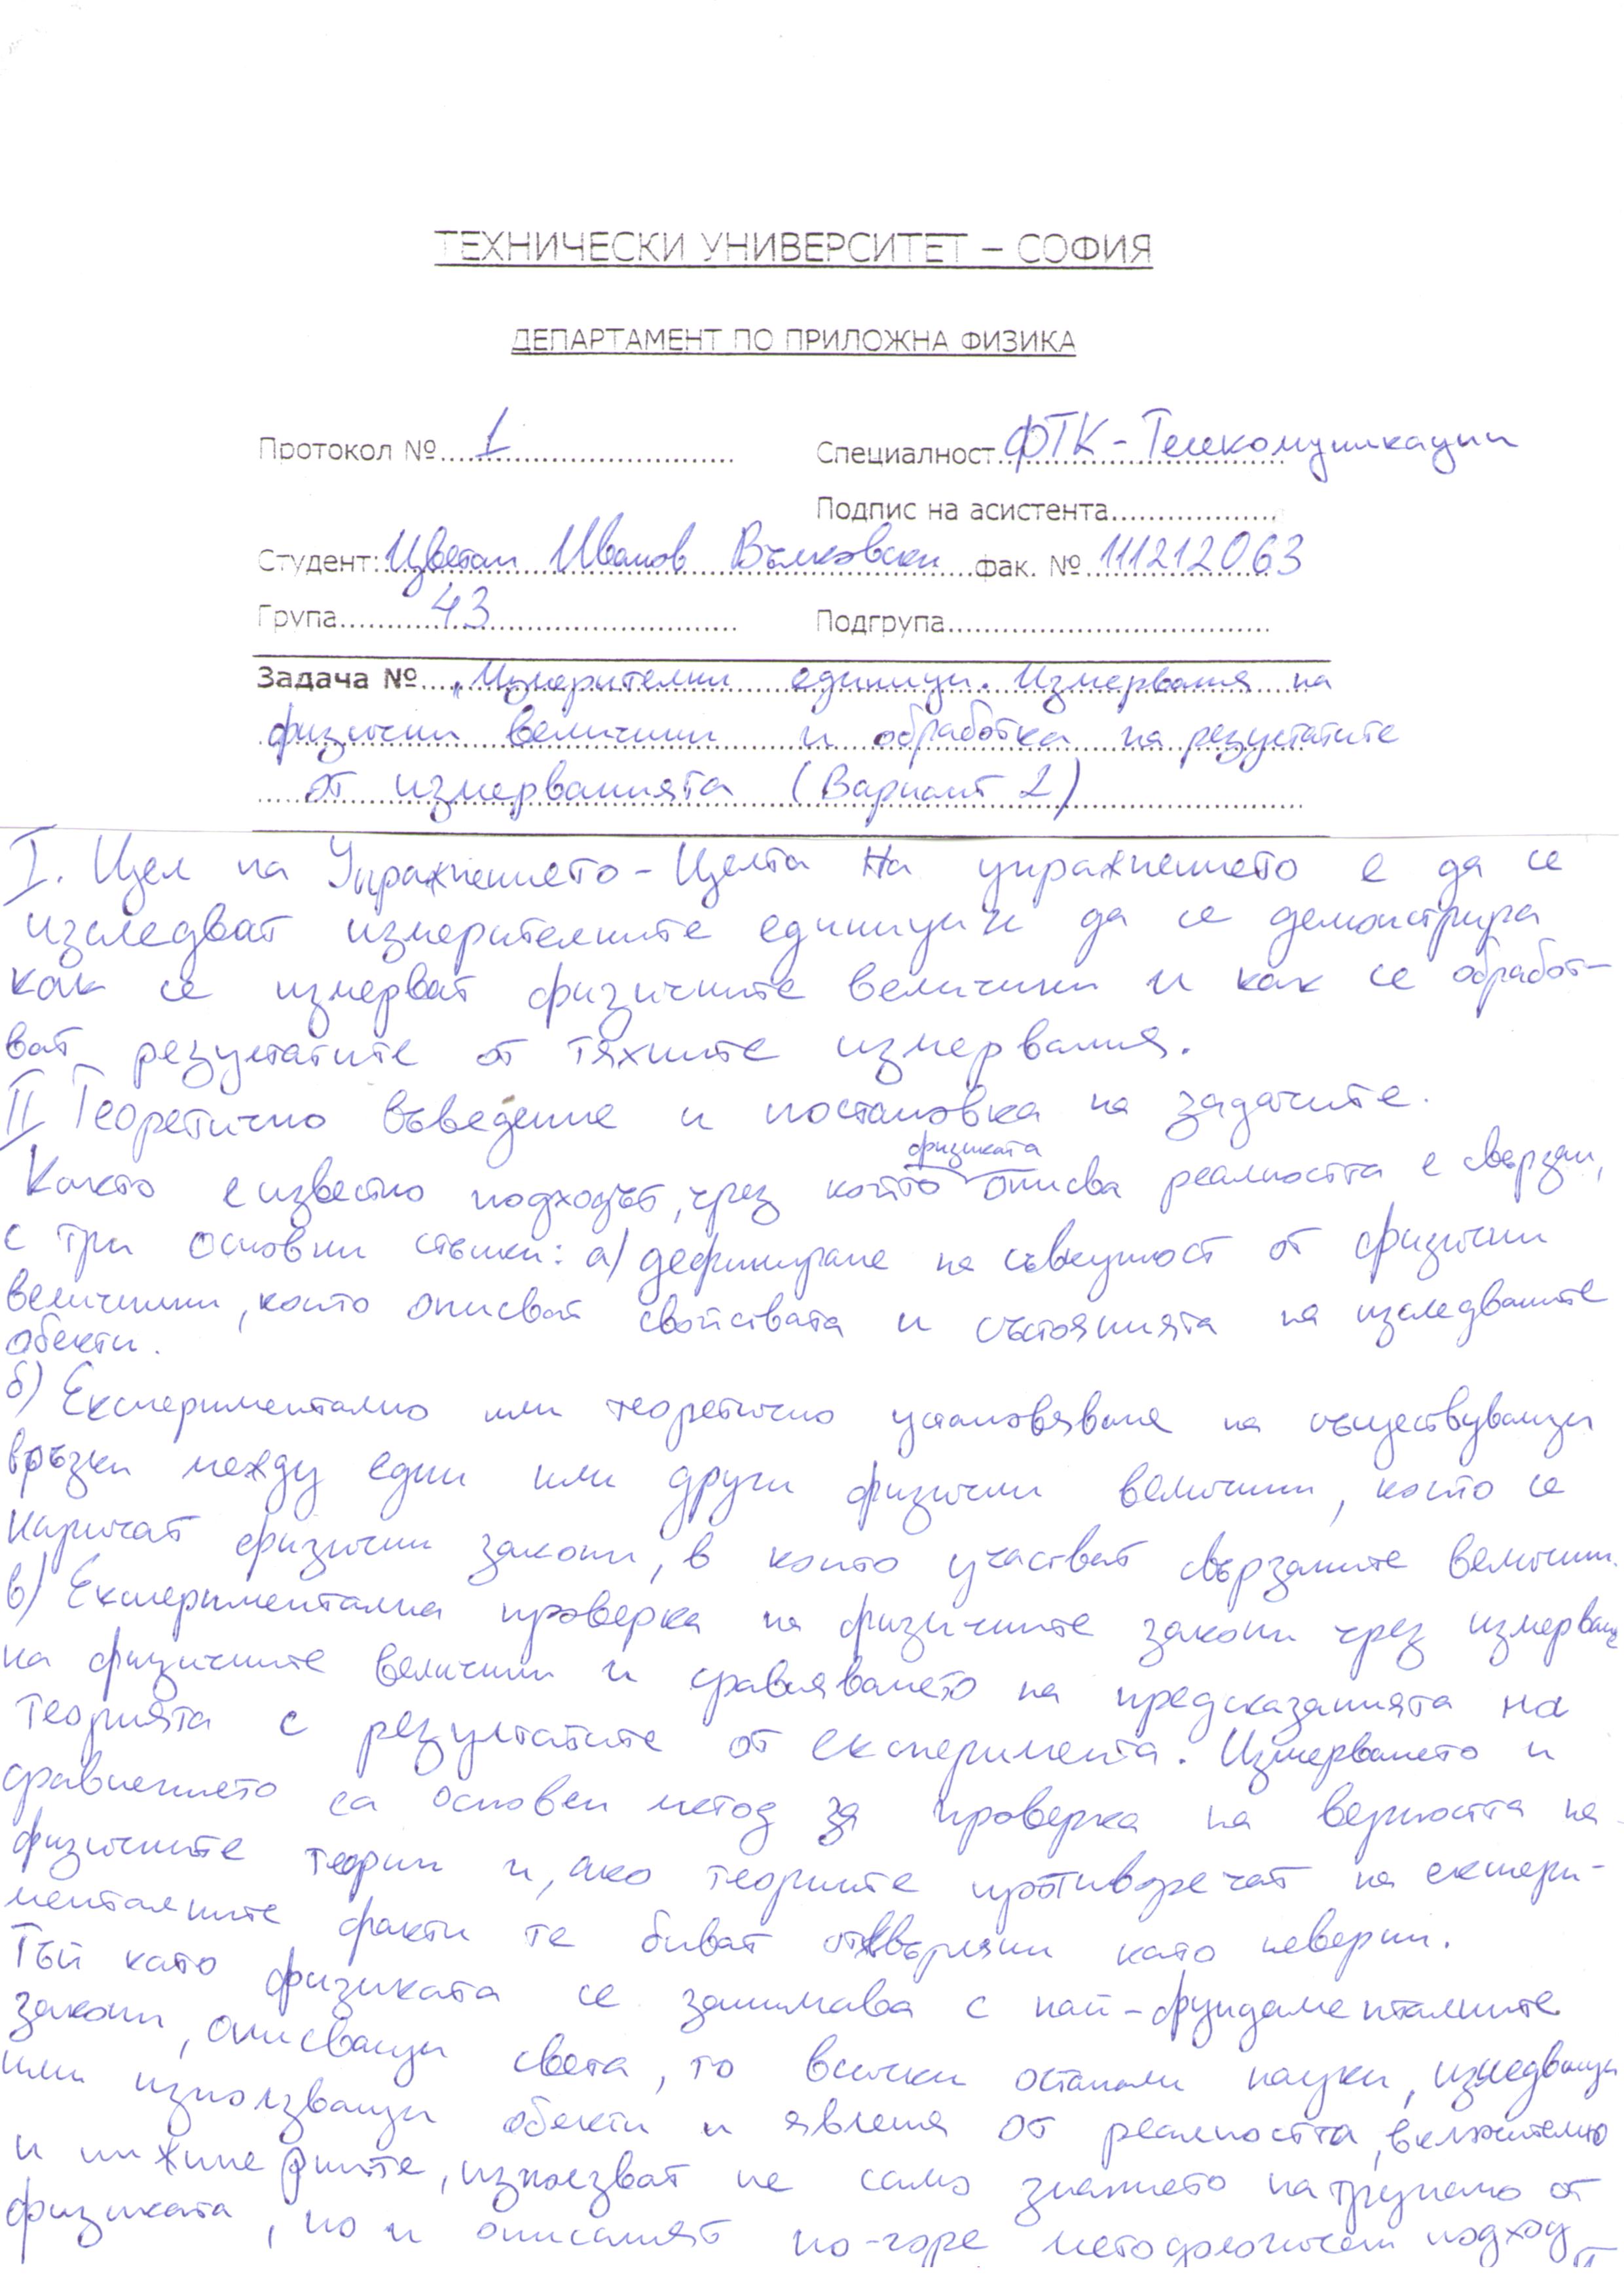 ТЕХНИЧЕСКИ УНИВЕРСИТЕТ – СОФИЯ
ДЕПАРТАМЕНТ ПО ПРИЛОЖНА ФИЗИКА
Протокол №....1.... Специалност ФТК - Телекомуникации
Подпис на асистента....................
Студент: Цветан Иванов Вълковски фак. № 111212063
Група....43.... Подгрупа....................
Задача №.... „Измерителни единици. Измервания на
физични величини и обработка на резултатите
от измерванията (Вариант 2)
I. Цел на Упражнението - Целта на упражнението е да се
изследват измерителните единици и да се демонстрира
как се измерват физичните величини и как се обработ-
ват резултатите от тяхните измервания.
II Теоретично въведение и постановка на задачите.
Както е известно подходът, чрез който физиката описва реалността е свързан,
с три основни стъпки: а) дефиниране на съвкупност от физични
величини, които описват свойствата и състоянията на изследваните
обекти.
б) Експериментално или теоретично установяване на съществуващи
връзки между едни или други физични величини, които се
наричат физични закони, в които участват свързаните величини.
в) Експериментална проверка на физичните закони чрез измерване
на физичните величини и сравняването на предсказанията на
теорията с резултатите от експеримента. Измерването и
сравнението са основен метод за проверка на верността на
физичните теории и, ако теориите противоречат на експери-
менталните факти те биват отхвърляни като неверни.
Тъй като физиката се занимава с най-фундаменталните
закони, описващи света, то всички останали науки, изследващи
или използващи обекти и явления от реалността, включително
и инжинерните, използват не само знанието натрупано от
физиката, но и описаният по-горе методологичен подход